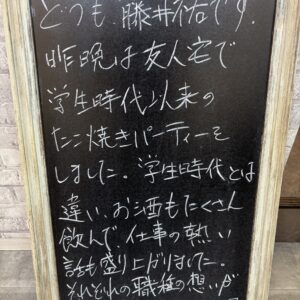 どうも、藤井祐です.
昨晩は友人宅で
学生時代以来の
たこ焼きパーティーを
しました. 学生時代とは
違い. お酒もたくさん
飲んで 仕事の熱い
話も盛り上がりました.
それぞれの職種の想いが